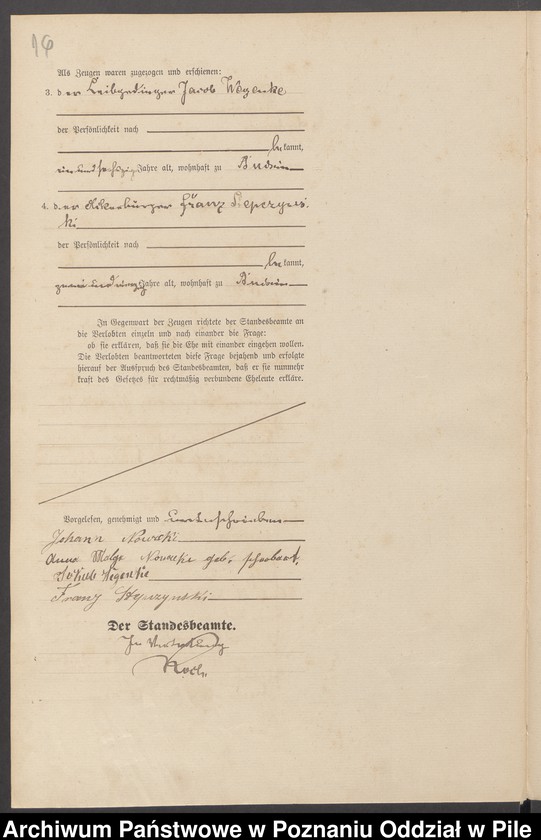 Als Zeugen waren zugezogen und erschienen:
3. der Leibgedinger Jacob Wegenke
der Persönlichkeit nach
bekannt,
Jahre alt, wohnhaft zu
4. der Ackerbürger Franz
ki
der Persönlichkeit nach
bekannt,
Jahre alt, wohnhaft zu
In Gegenwart der Zeugen richtete der Standesbeamte an
die Verlobten einzeln und nach einander die Frage:
ob sie erklären, daß sie die Ehe mit einander eingehen wollen.
Die Verlobten beantworteten diese Frage bejahend und erfolgte
hierauf der Ausspruch des Standesbeamten, daß er sie nunmehr
kraft des Gesetzes für rechtmäßig verbundene Eheleute erkläre.
Vorgelesen, genehmigt und unterschrieben
Johann Nowacki
Anna Nowacki geb.
Franz
Der Standesbeamte.
In Vertretung
Archiwum Państwowe w Poznaniu Oddział w Pile